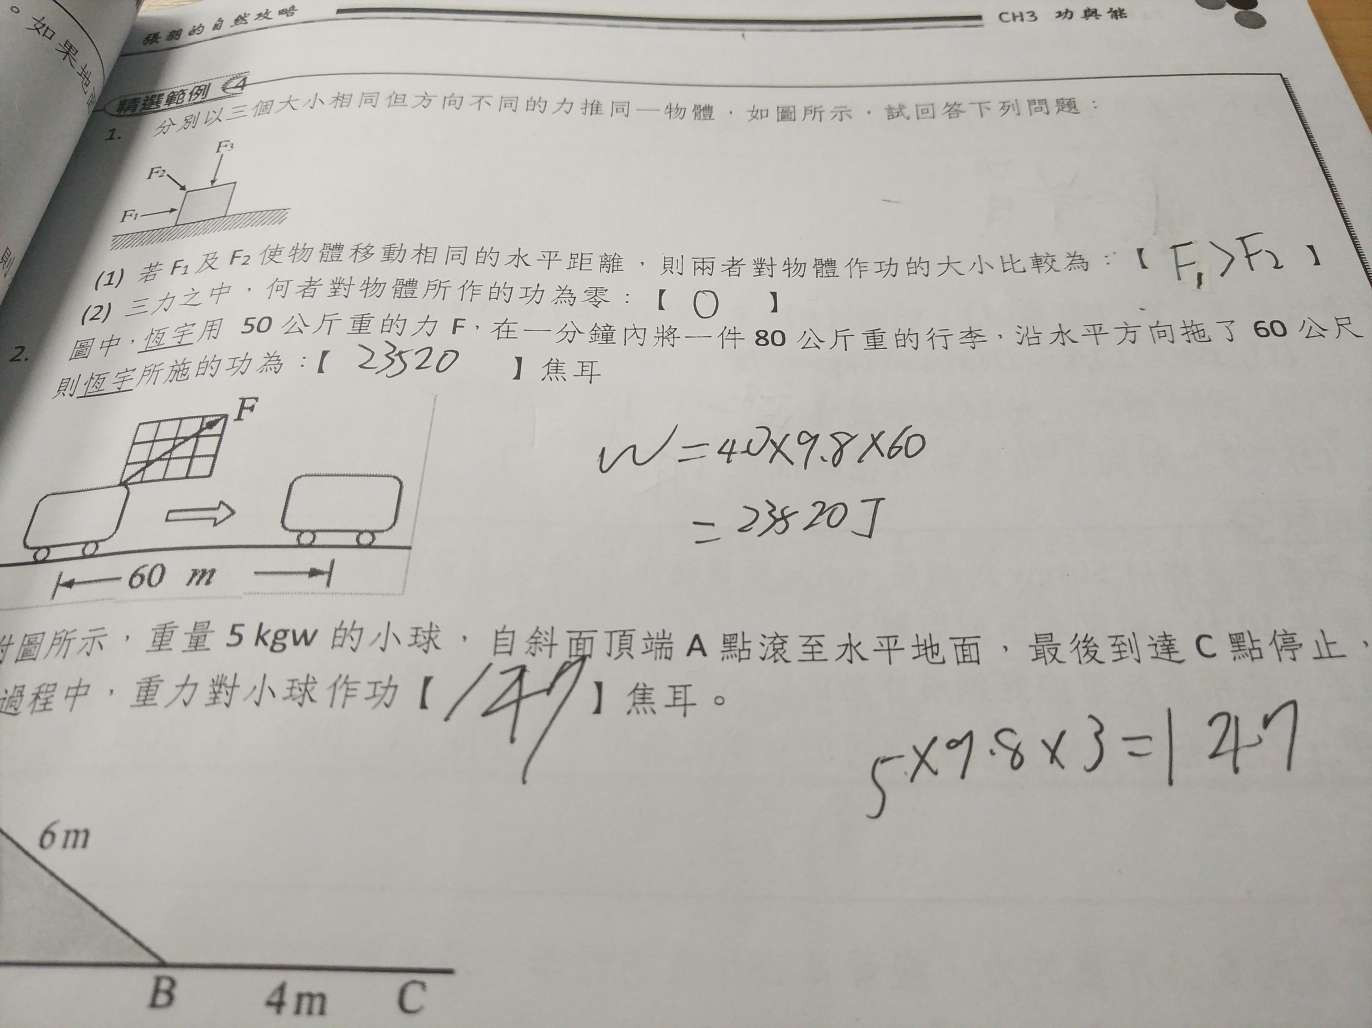 。如果地面
張翻的自然攻略
CH3 功與能
精選範例 C4
1. 分別以三個大小相同但方向不同的力推同一物體，如圖所示，試回答下列問題：
F3
F2
F1
(1) 若 F1 及 F2 使物體移動相同的水平距離，則兩者對物體作功的大小比較為：【 F1>F2 】
(2) 三力之中，何者對物體所作的功為零：【 0 】
2. 圖中，恆宇用 50 公斤重的力 F，在一分鐘內將一件 80 公斤重的行李，沿水平方向拖了 60 公尺
則恆宇所施的功為：【 23520 】焦耳
F
W=40×9.8×60
=23520J
60 m
附圖所示，重量 5 kgw 的小球，自斜面頂端 A 點滾至水平地面，最後到達 C 點停止，
過程中，重力對小球作功【 147 】焦耳。
5×9.8×3=147
6m
B 4m C
則